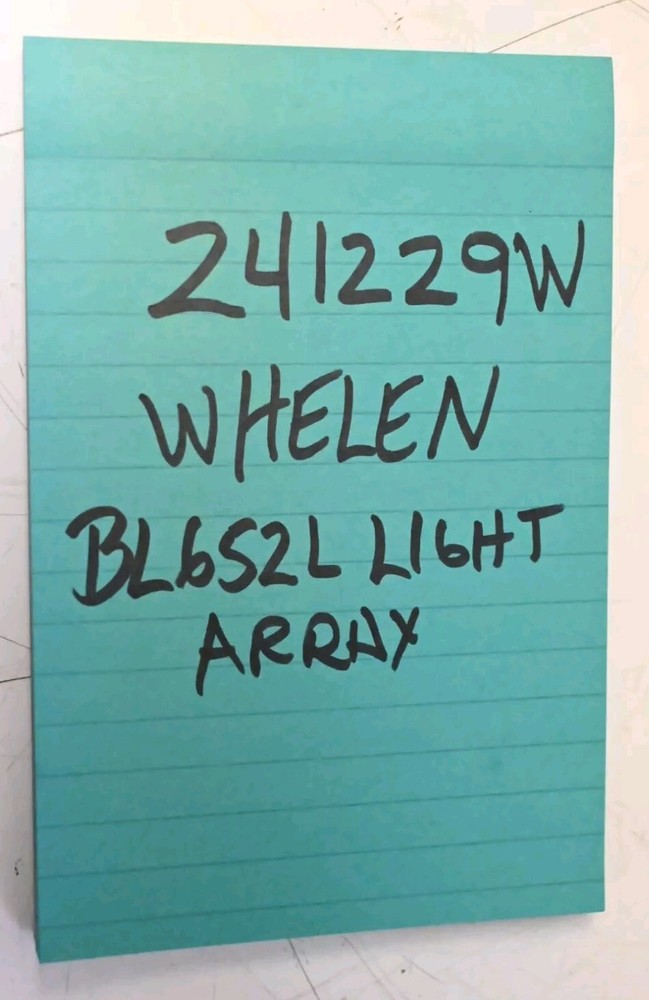 241229W
WHELEN
BL652L LIGHT
ARRAY